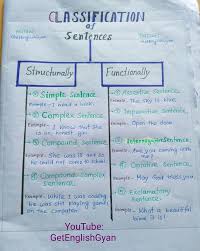 CLASSIFICATION
of
Sentences
Structurally
Functionally
① Simple Sentence
Example - I want a book.
② Complex Sentence
Example - I know that she is an honest girl.
③ Compound Sentence
Example - She was ill and so could not come to school
④ Compound-complex Sentence
Example - While I was cooking, he was still playing games on the computer
① Assertive Sentence
Example - The sky is blue.
② Imperative Sentence
Example - Open the door
③ Interrogative Sentence
Example - Are you coming with me?
④ Optative Sentence
Example - May God bless you.
⑤ Exclamatory Sentence
Example - What a beautiful time it is!
YouTube:
GetEnglishGyan